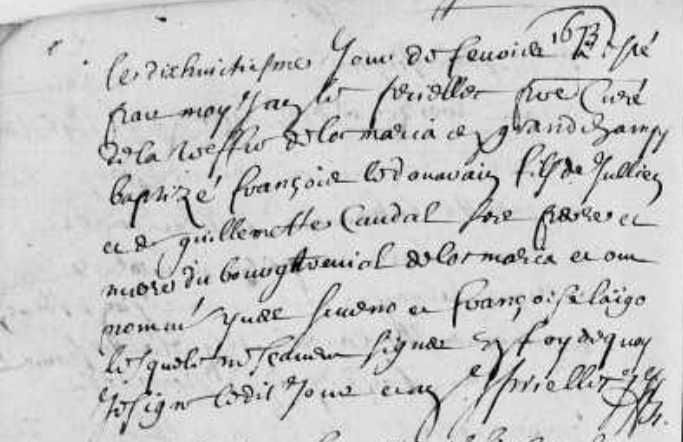 le dixhuictiesme Jour de febvrier 1673 a esté
par moy Jan le frieller pbre Curé
de la treffve de locmaria en grandchamp
baptizé françois ledouarain fils de Jullien
et de guillemette Caudal ses pere et
mere du bourg trevial de locmaria et ont
nommé yves et françoise laigo
lesquels ne scavent signer en foy de quoy
Je signe ledit Jour et an